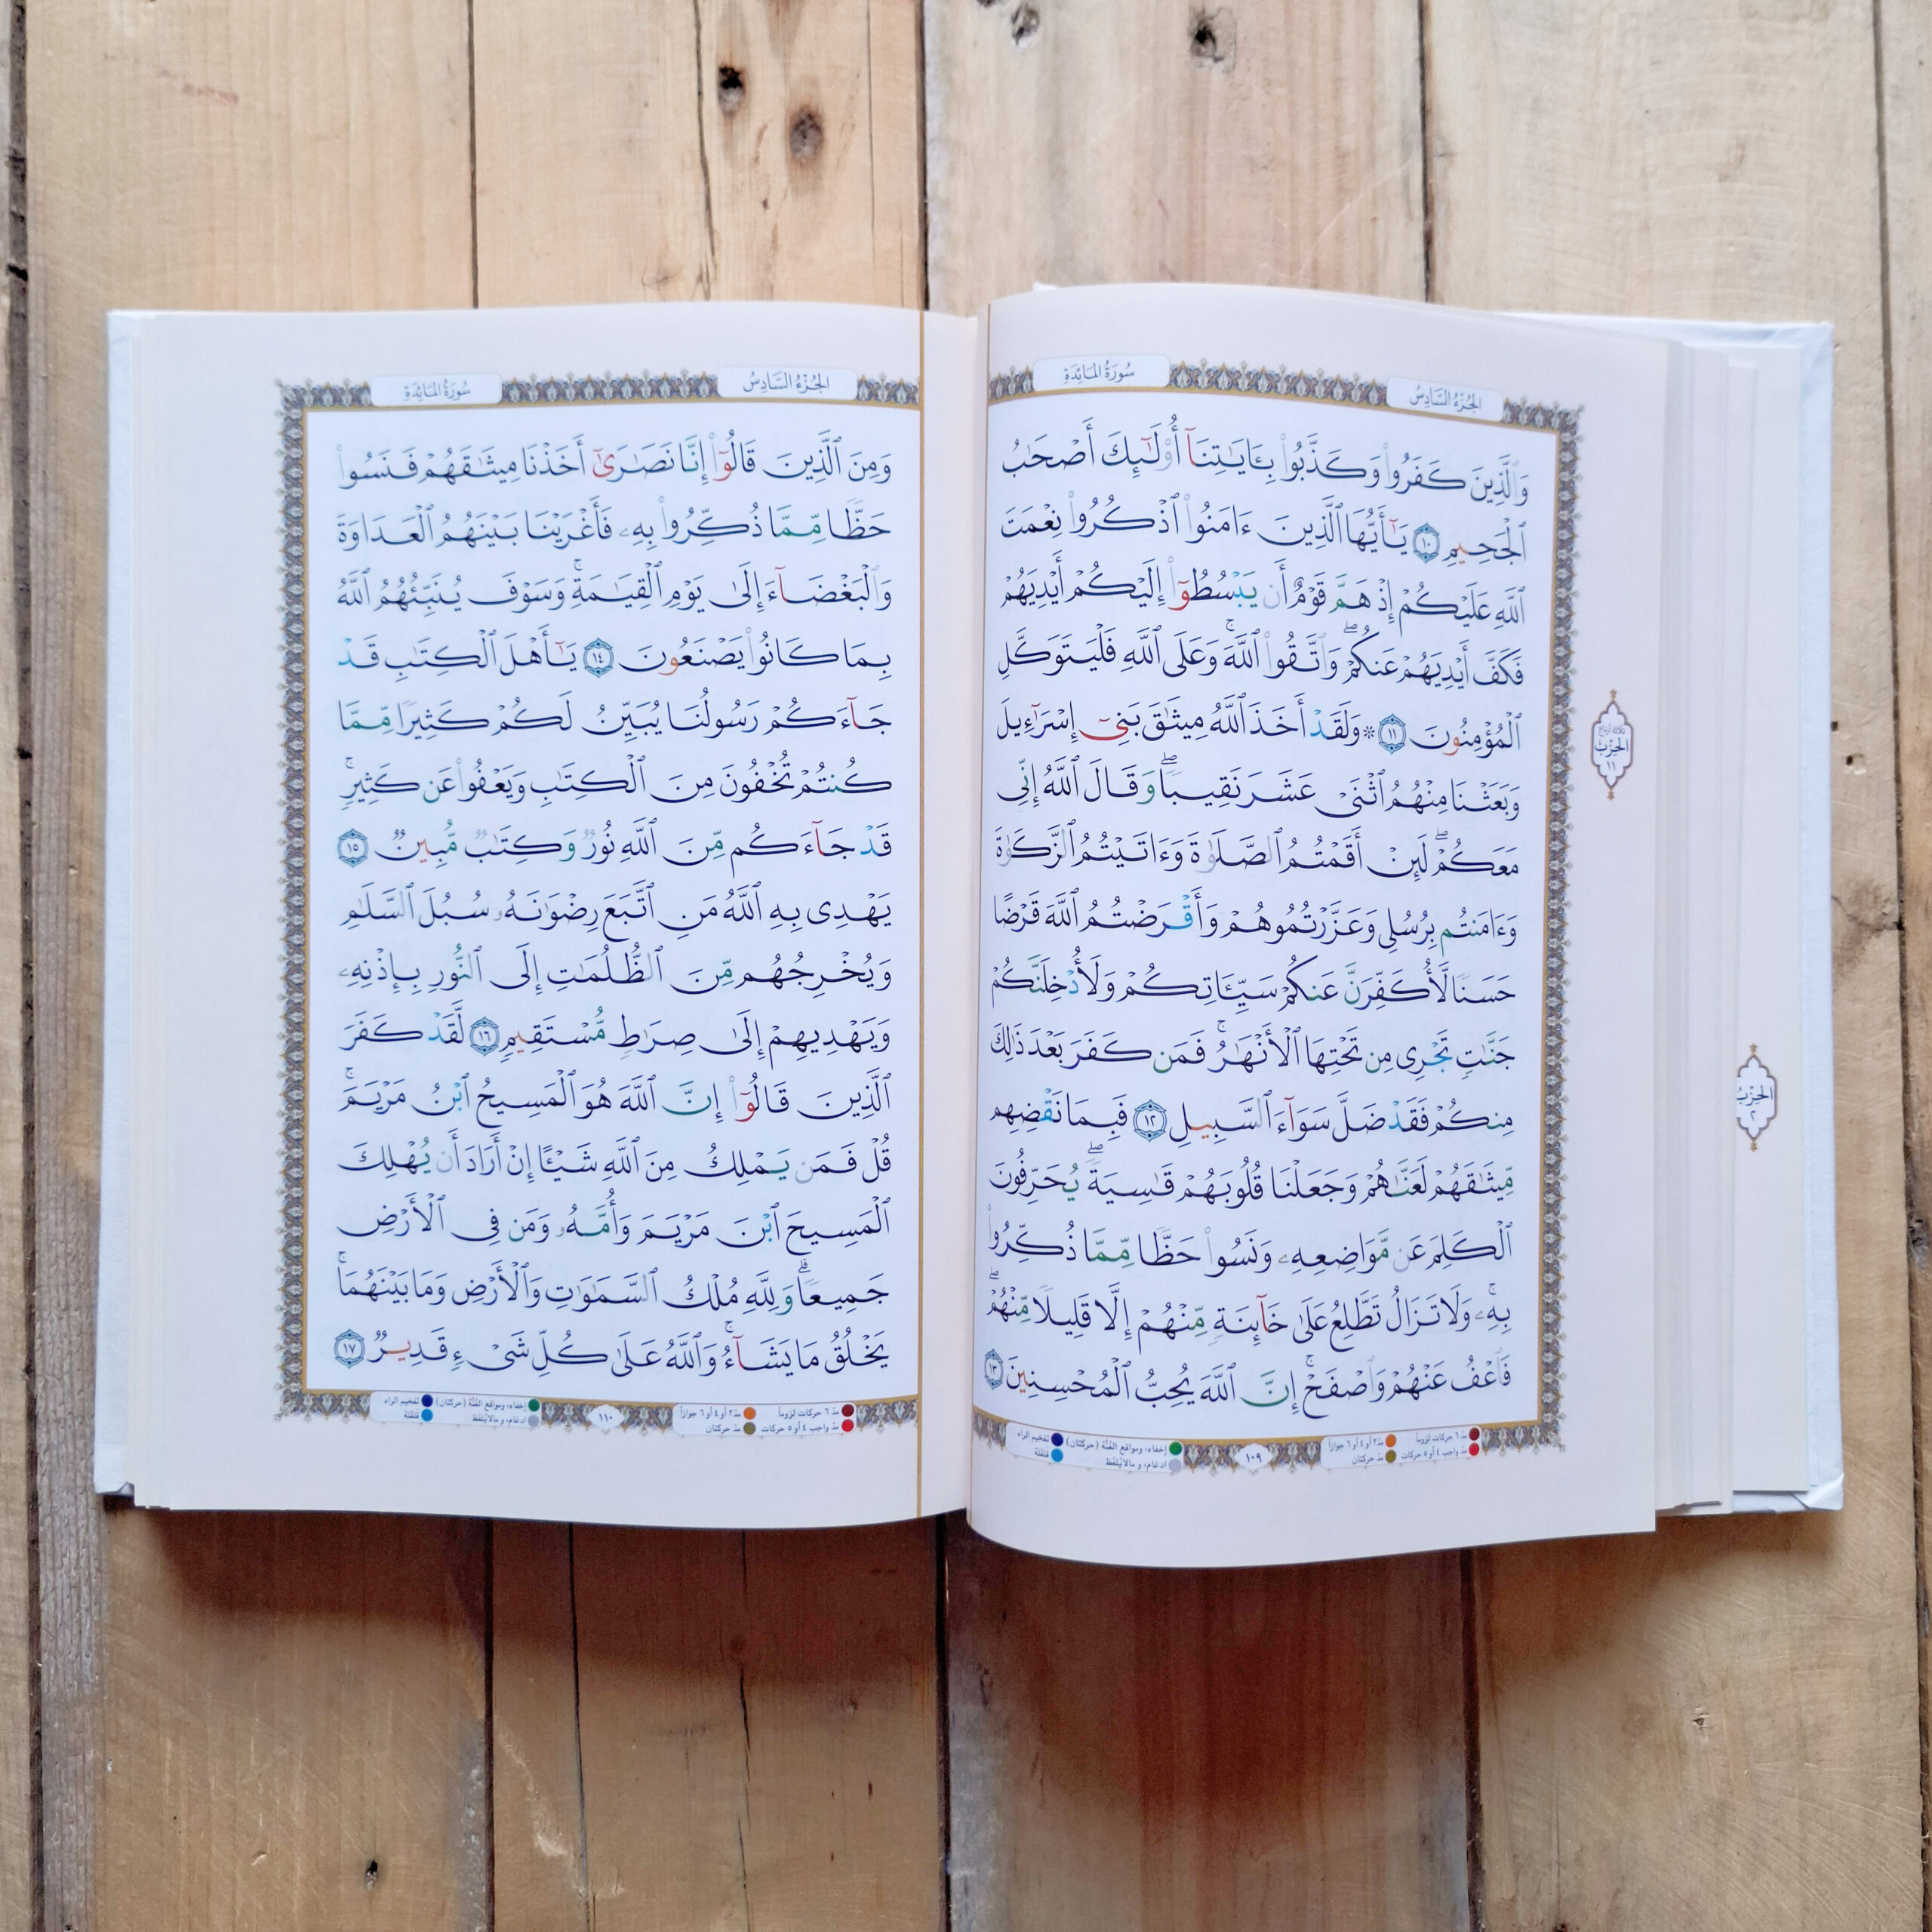 الجُزْءُ السَّادِسُ
سُورَةُ المَائِدَةِ
وَٱلَّذِينَ كَفَرُوا۟ وَكَذَّبُوا۟ بِـَٔايَـٰتِنَآ أُو۟لَـٰٓئِكَ أَصْحَـٰبُ
ٱلْجَحِيمِ ١٠ يَـٰٓأَيُّهَا ٱلَّذِينَ ءَامَنُوا۟ ٱذْكُرُوا۟ نِعْمَتَ
ٱللَّهِ عَلَيْكُمْ إِذْ هَمَّ قَوْمٌ أَن يَبْسُطُوٓا۟ إِلَيْكُمْ أَيْدِيَهُمْ
فَكَفَّ أَيْدِيَهُمْ عَنكُمْ ۖ وَٱتَّقُوا۟ ٱللَّهَ ۚ وَعَلَى ٱللَّهِ فَلْيَتَوَكَّلِ
ٱلْمُؤْمِنُونَ ١١ * وَلَقَدْ أَخَذَ ٱللَّهُ مِيثَـٰقَ بَنِىٓ إِسْرَٰٓءِيلَ
وَبَعَثْنَا مِنْهُمُ ٱثْنَىْ عَشَرَ نَقِيبًا ۖ وَقَالَ ٱللَّهُ إِنِّى
مَعَكُمْ ۖ لَئِنْ أَقَمْتُمُ ٱلصَّلَوٰةَ وَءَاتَيْتُمُ ٱلزَّكَوٰةَ
وَءَامَنتُم بِرُسُلِى وَعَزَّرْتُمُوهُمْ وَأَقْرَضْتُمُ ٱللَّهَ قَرْضًا
حَسَنًا لَّأُكَفِّرَنَّ عَنكُمْ سَيِّـَٔاتِكُمْ وَلَأُدْخِلَنَّكُمْ
جَنَّـٰتٍ تَجْرِى مِن تَحْتِهَا ٱلْأَنْهَـٰرُ ۚ فَمَن كَفَرَ بَعْدَ ذَٰلِكَ
مِنكُمْ فَقَدْ ضَلَّ سَوَآءَ ٱلسَّبِيلِ ١٢ فَبِمَا نَقْضِهِم
مِّيثَـٰقَهُمْ لَعَنَّـٰهُمْ وَجَعَلْنَا قُلُوبَهُمْ قَـٰسِيَةً ۖ يُحَرِّفُونَ
ٱلْكَلِمَ عَن مَّوَاضِعِهِۦ ۙ وَنَسُوا۟ حَظًّا مِّمَّا ذُكِّرُوا۟
بِهِۦ ۚ وَلَا تَزَالُ تَطَّلِعُ عَلَىٰ خَآئِنَةٍ مِّنْهُمْ إِلَّا قَلِيلًا مِّنْهُمْ ۖ
فَٱعْفُ عَنْهُمْ وَٱصْفَحْ ۚ إِنَّ ٱللَّهَ يُحِبُّ ٱلْمُحْسِنِينَ ١٣
مدّ ٦ حركات لزوماً
مدّ ٢ أو ٤ أو ٦ جوازاً
مدّ واجب ٤ أو ٥ حركات
مدّ حركتان
١٠٩
إخفاء، ومواقع الغُنَّة (حركتان)
ادغام، وما لا يُلفَظ
تفخيم الراء
قلقلة
ثلاثة أرباع
الحزب
١١
الحزب
٢
الجُزْءُ السَّادِسُ
سُورَةُ المَائِدَةِ
وَمِنَ ٱلَّذِينَ قَالُوٓا۟ إِنَّا نَصَـٰرَىٰٓ أَخَذْنَا مِيثَـٰقَهُمْ فَنَسُوا۟
حَظًّا مِّمَّا ذُكِّرُوا۟ بِهِۦ فَأَغْرَيْنَا بَيْنَهُمُ ٱلْعَدَاوَةَ
وَٱلْبَغْضَآءَ إِلَىٰ يَوْمِ ٱلْقِيَـٰمَةِ ۚ وَسَوْفَ يُنَبِّئُهُمُ ٱللَّهُ
بِمَا كَانُوا۟ يَصْنَعُونَ ١٤ يَـٰٓأَهْلَ ٱلْكِتَـٰبِ قَدْ
جَآءَكُمْ رَسُولُنَا يُبَيِّنُ لَكُمْ كَثِيرًا مِّمَّا
كُنتُمْ تُخْفُونَ مِنَ ٱلْكِتَـٰبِ وَيَعْفُوا۟ عَن كَثِيرٍ ۚ
قَدْ جَآءَكُم مِّنَ ٱللَّهِ نُورٌ وَكِتَـٰبٌ مُّبِينٌ ١٥
يَهْدِى بِهِ ٱللَّهُ مَنِ ٱتَّبَعَ رِضْوَٰنَهُۥ سُبُلَ ٱلسَّلَـٰمِ
وَيُخْرِجُهُم مِّنَ ٱلظُّلُمَـٰتِ إِلَى ٱلنُّورِ بِإِذْنِهِۦ
وَيَهْدِيهِمْ إِلَىٰ صِرَٰطٍ مُّسْتَقِيمٍ ١٦ لَّقَدْ كَفَرَ
ٱلَّذِينَ قَالُوٓا۟ إِنَّ ٱللَّهَ هُوَ ٱلْمَسِيحُ ٱبْنُ مَرْيَمَ ۚ
قُلْ فَمَن يَمْلِكُ مِنَ ٱللَّهِ شَيْـًٔا إِنْ أَرَادَ أَن يُهْلِكَ
ٱلْمَسِيحَ ٱبْنَ مَرْيَمَ وَأُمَّهُۥ وَمَن فِى ٱلْأَرْضِ
جَمِيعًا ۗ وَلِلَّهِ مُلْكُ ٱلسَّمَـٰوَٰتِ وَٱلْأَرْضِ وَمَا بَيْنَهُمَا ۚ
يَخْلُقُ مَا يَشَآءُ ۚ وَٱللَّهُ عَلَىٰ كُلِّ شَىْءٍ قَدِيرٌ ١٧
مدّ ٦ حركات لزوماً
مدّ ٢ أو ٤ أو ٦ جوازاً
مدّ واجب ٤ أو ٥ حركات
مدّ حركتان
١١٠
إخفاء، ومواقع الغُنَّة (حركتان)
ادغام، وما لا يُلفَظ
تفخيم الراء
قلقلة